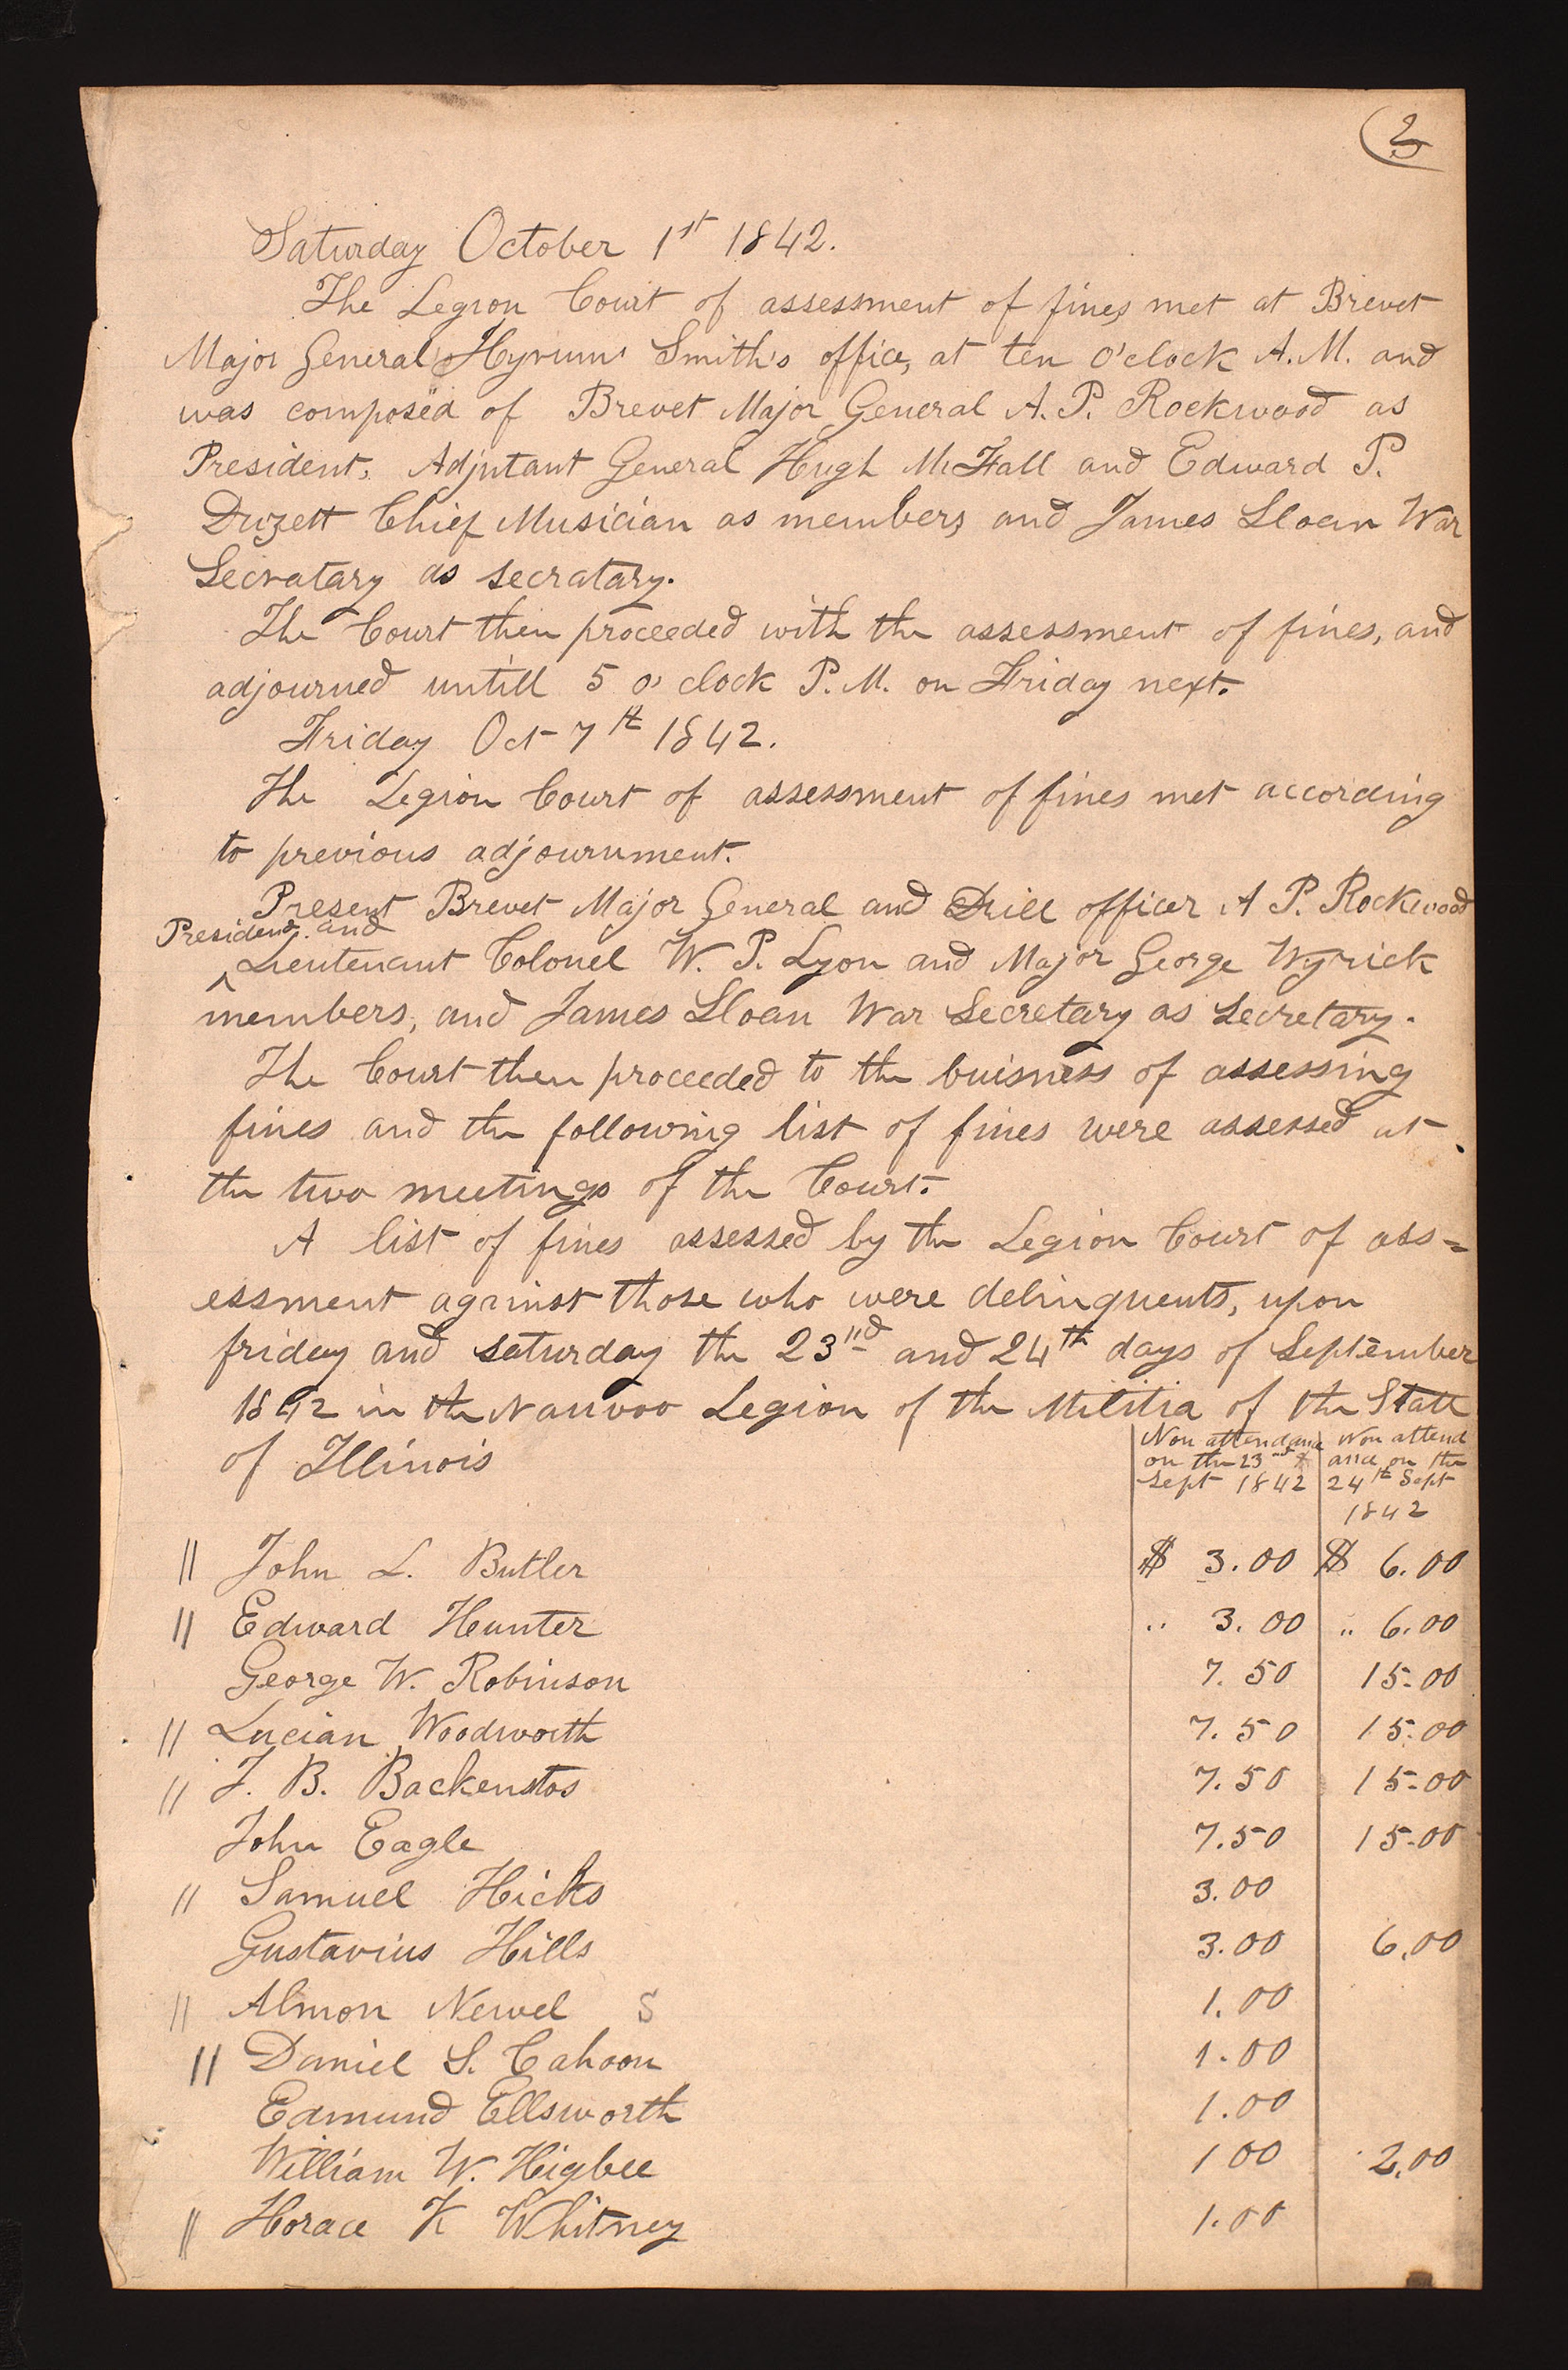 2
Saturday October 1st 1842.
The Legion Court of assessment of fines met at Brevet
Major General Hyrum Smith's office, at ten o'clock A.M. and
was composed of Brevet Major General A. P. Rockwood as
President, Adjutant General Hugh McFall and Edward P.
Duzett Chief Musician as members, and James Sloan War
Secratary as secratary.
The Court then proceeded with the assessment of fines, and
adjourned untill 5 o' clock P.M. on Friday next.
Friday Oct 7th 1842.
The Legion Court of assessment of fines met according
to previous adjournment.
Present Brevet Major General and Drill officer A P. Rockwood
President and
^Lieutenant Colonel W. P. Lyon and Major George Wyrick
members, and James Sloan War Secretary as Secretary.
The Court then proceeded to the buisness of assessing
fines and the following list of fines were assessed at
the two meetings of the Court.
A list of fines assessed by the Legion Court of ass=
essment against those who were delinquents, upon
friday and saturday the 23rd and 24th days of September
1842 in the Nauvoo Legion of the Militia of the State
of Illinois
Non attendance on the 23rd Sept 1842 | Non attendance on the 24th Sept 1842
" John L. Butler $ 3.00 $ 6.00
" Edward Hunter " 3.00 " 6.00
George W. Robinson 7.50 15.00
" Lucian Woodworth 7.50 15.00
" J. B. Backenstos 7.50 15.00
John Eagle 7.50 15.00
" Samuel Hicks 3.00
Gustavius Hills 3.00 6.00
" Almon Newel S 1.00
" Daniel S. Cahoon 1.00
Edmund Ellsworth 1.00
William W. Higbee 1 00 2.00
" Horace K Whitney 1.00